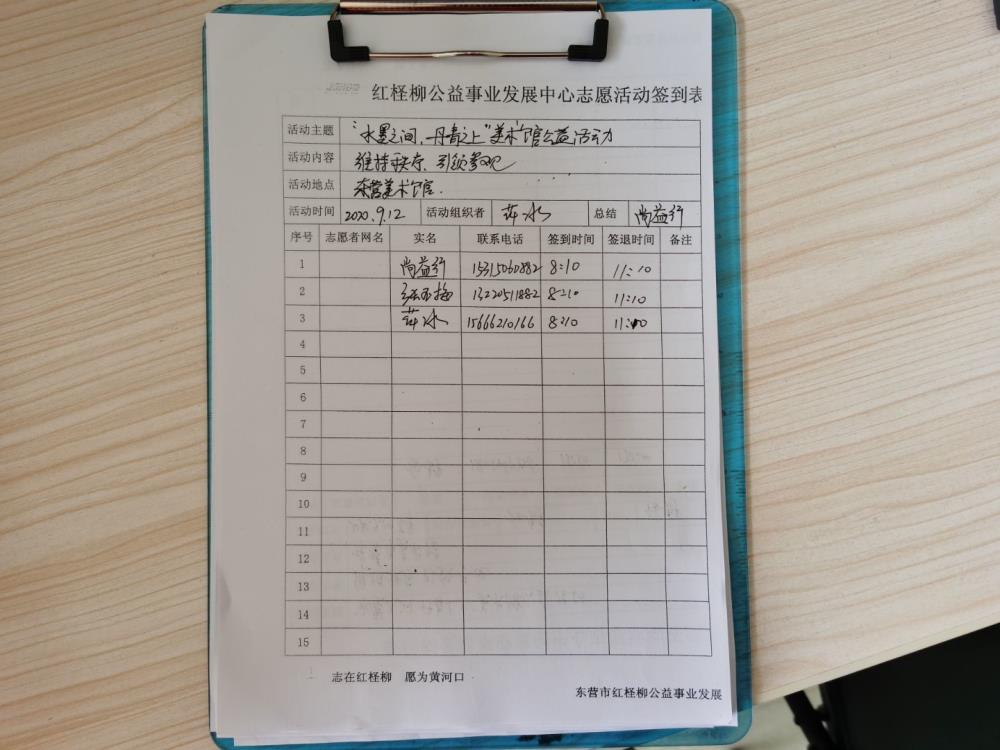 红柽柳公益事业发展中心志愿活动签到表
活动主题 "水墨之间,丹青之上"美术馆公益活动
活动内容 维持秩序、引领参观
活动地点 东营美术馆.
活动时间 2020.9.12 活动组织者 萍水 总结 尚益行
序号 志愿者网名 实名 联系电话 签到时间 签退时间 备注
1 尚益行 15315060882 8:10 11:10
2 13220511882 8:10 11:10
3 萍水 15666210166 8:10 11:00
4
5
6
7
8
9
10
11
12
13
14
15
志在红柽柳 愿为黄河口
东营市红柽柳公益事业发展